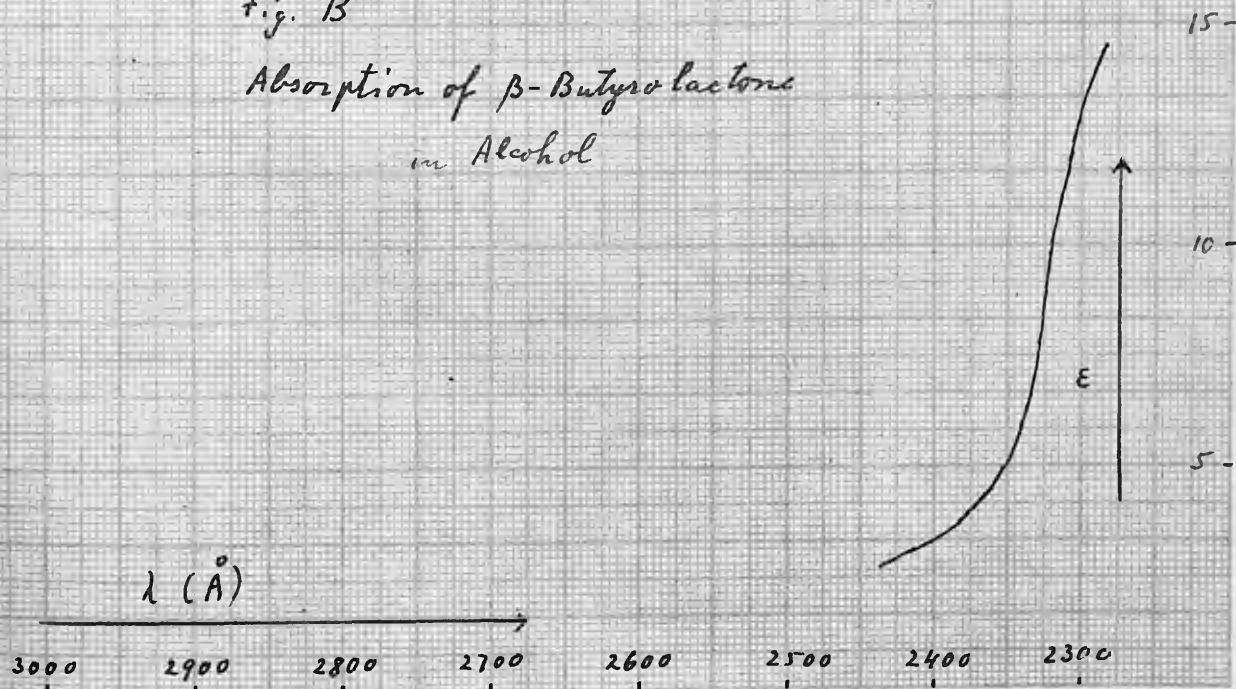 Fig. B
Absorption of β-Butyrolactone
in Alcohol
15
10
ε
5
λ (Å)
3000 2900 2800 2700 2600 2500 2400 2300